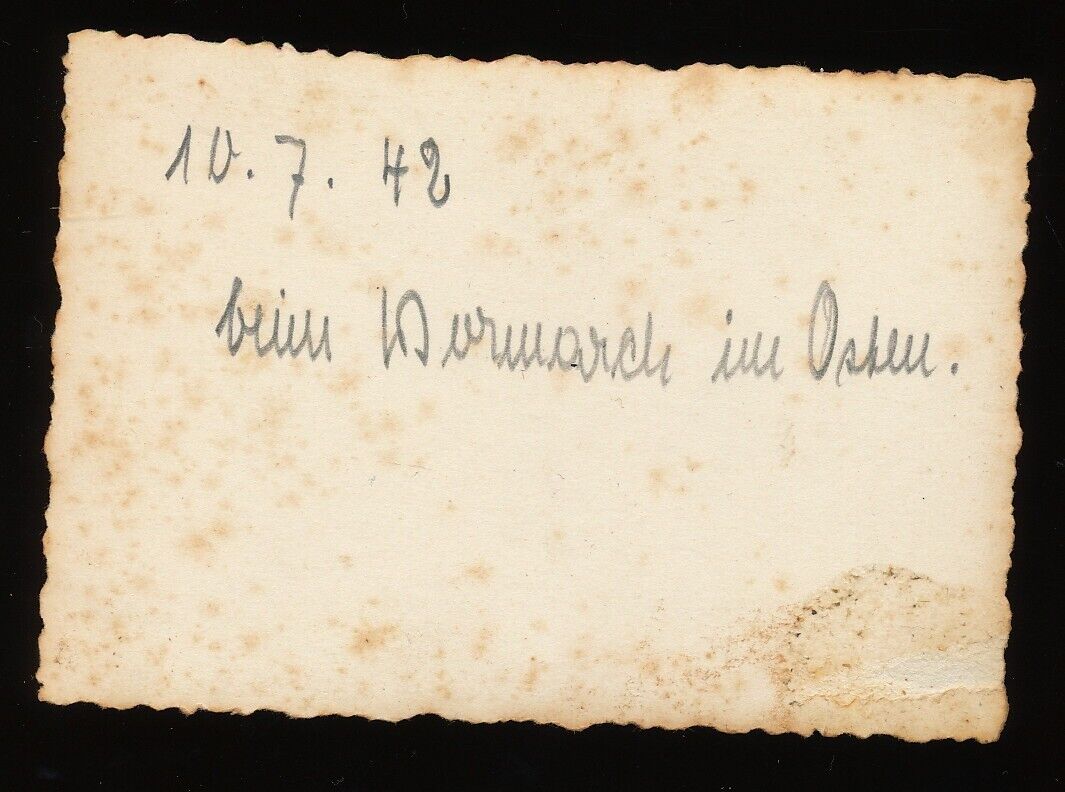 10. 7. 42
beim Vormarch im Osten.